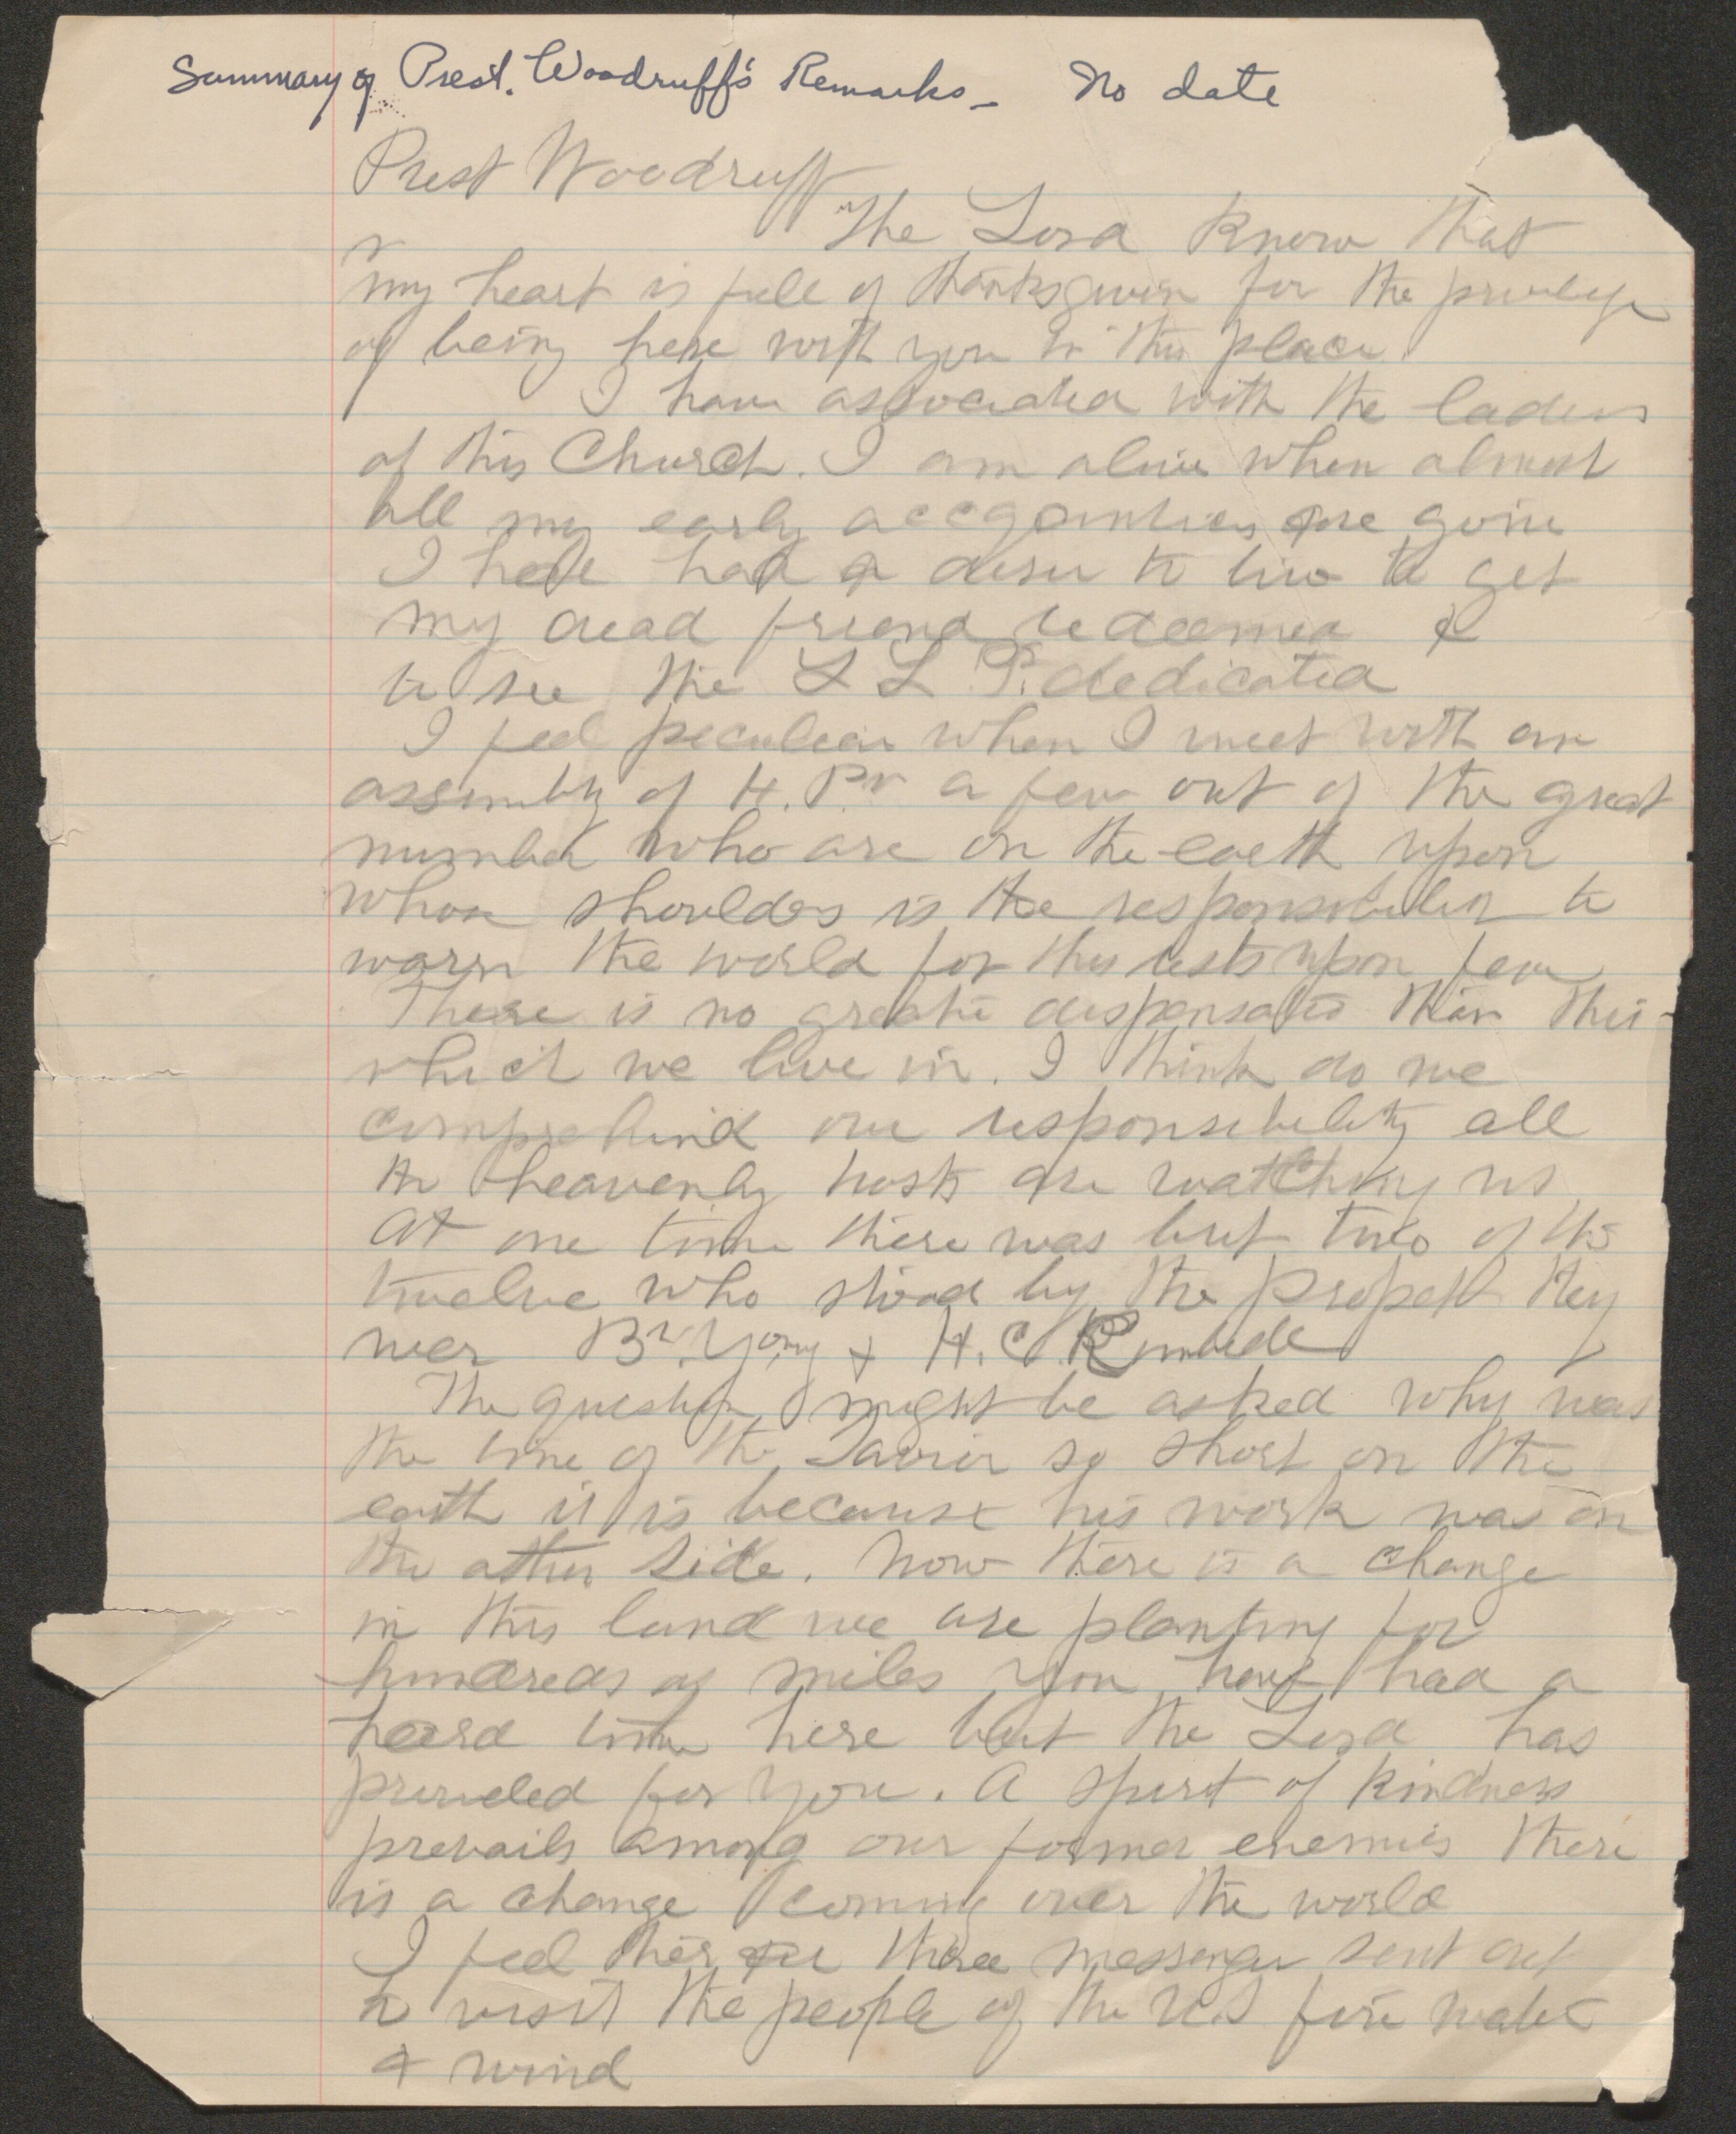 Summary of Prest. Woodruff's Remarks - No date
Prest Woodruff
The Lord know that
my heart is full of thanksgivin for the privilege
of being here with you in this place.
I have associated with the laders
of this Church. I am alive when almost
all my early are gone
I have had a desire to live to get
my dead friend redeemed &
to see the S L T. dedicated
I feel peculiar when I meet with an
assembly of H. Pr a few out of the great
number who are on the earth upon
whose shoulders is the responsibility to
warn the world for this rests upon few
There is no greater dispensatio than this
which we live in. I think do we
comprehend our responsibility all
the heavenly hosts are watching us
At one time there was but two of the
twelve who stood by the Propeth they
wer Br. Yong & H. C. Kimbell
The question might be asked why was
the time of the Savior so short on the
earth it is because his work was on
the other side. Now there is a change
in this land we are planting for
hundreds of miles you have had a
hard time here but the Lord has
provided for you. A spirit of kindness
prevails among our former enemies there
is a change coming over the world
I feel ther are three messenger sent out
to visit the people of the U.S fire water
& wind